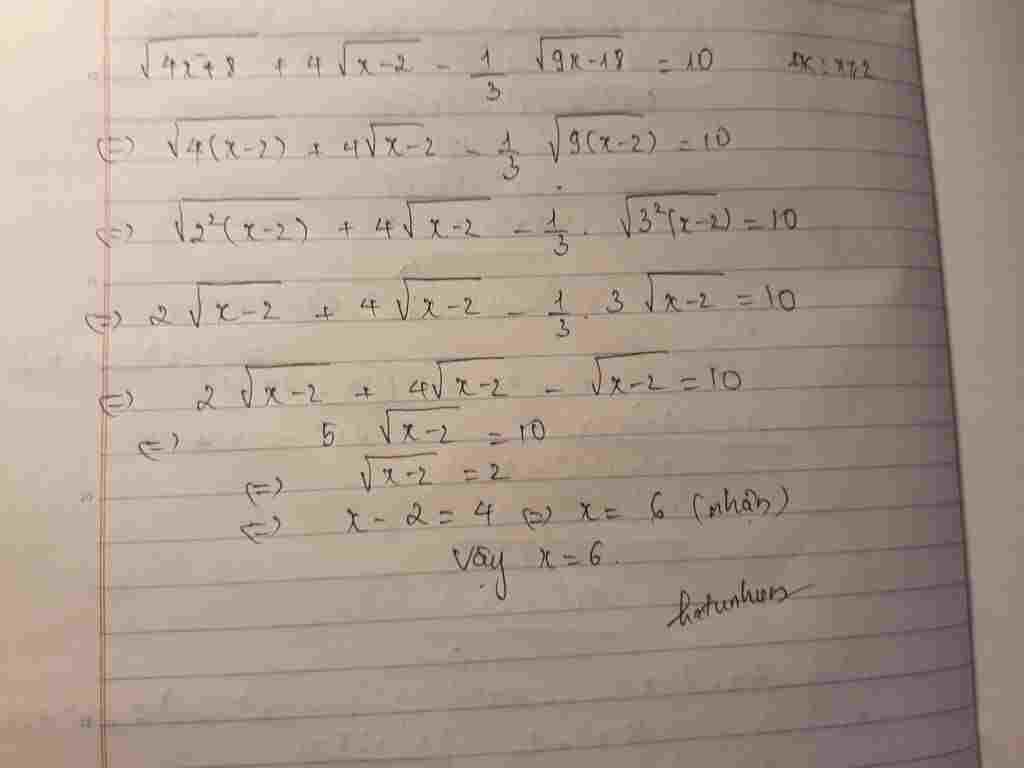 √(4x+8) + 4√(x-2) - 1/3 √(9x-18) = 10 ĐK: x≥2
(=) √(4(x-2)) + 4√(x-2) - 1/3 √(9(x-2)) = 10
(=) √(2²(x-2)) + 4√(x-2) - 1/3 . √(3²(x-2)) = 10
(=) 2√(x-2) + 4√(x-2) - 1/3 . 3√(x-2) = 10
(=) 2√(x-2) + 4√(x-2) - √(x-2) = 10
(=) 5√(x-2) = 10
(=) √(x-2) = 2
(=) x - 2 = 4 (=) x = 6 (nhận)
Vậy x = 6.